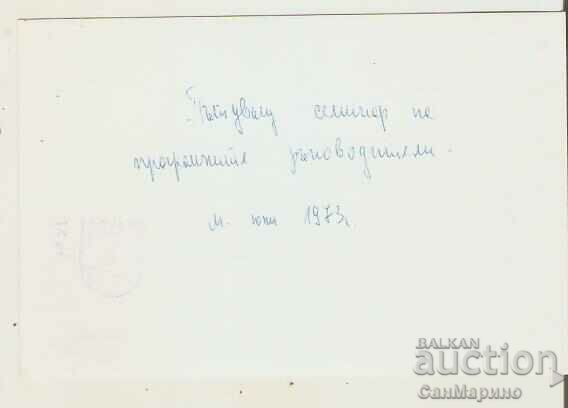 Пътуващ семинар на
програмните ръководители.
м. юни 1973г.
BALKAN
auction
СанМарино